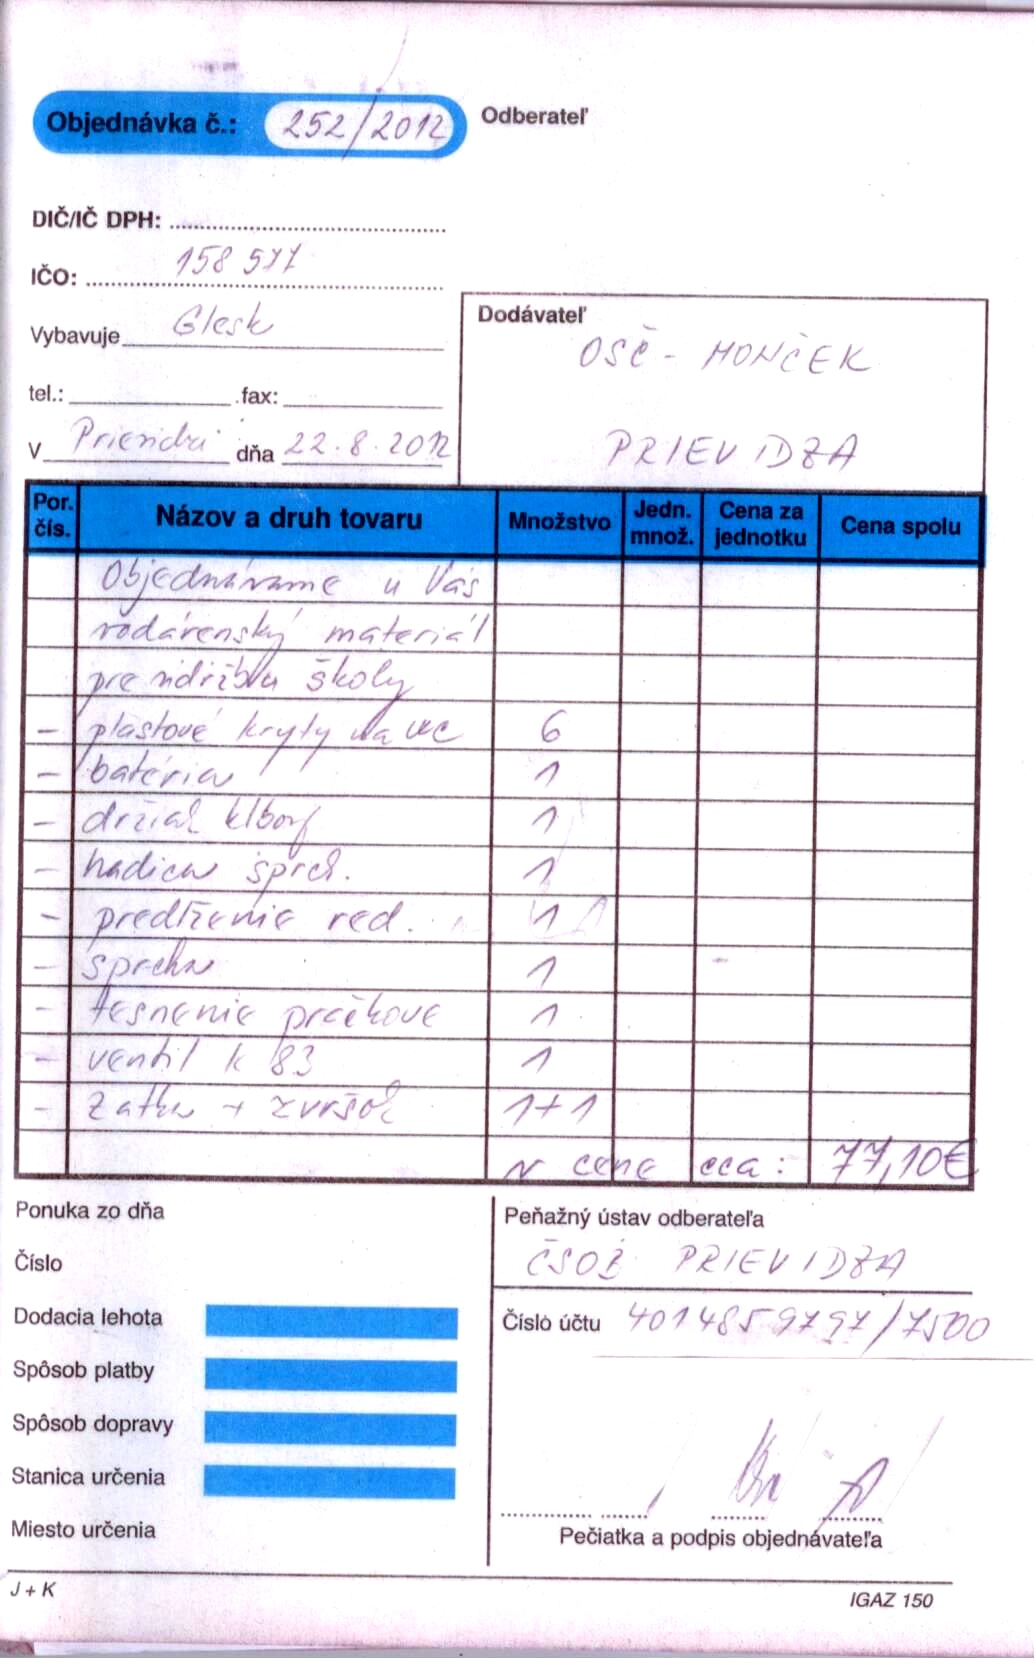 Objednávka č.: 252/2012
Odberateľ
DIČ/IČ DPH:
IČO: 158 577
Vybavuje Glesk
tel.: fax:
V Prievidzi dňa 22.8.2012
Dodávateľ
OSČ - HONČEK
PRIEVIDZA
Por. čís. Názov a druh tovaru Množstvo Jedn. množ. Cena za jednotku Cena spolu
Objednávame u Vás
vodárenský materiál
pre údržbu školy
- plastové kryty na WC 6
- batéria 1
- držiak 1
- hadica sprch. 1
- predĺženie red. 1
- sprcha 1
- tesnenie práčkové 1
- ventil k 83 1
- zátka + zvršok 1+1
v cene cca: 77,10€
Ponuka zo dňa
Číslo
Dodacia lehota
Spôsob platby
Spôsob dopravy
Stanica určenia
Miesto určenia
Peňažný ústav odberateľa
ČSOB PRIEVIDZA
Číslo účtu 4014859797/7500
Pečiatka a podpis objednávateľa
J + K
IGAZ 150